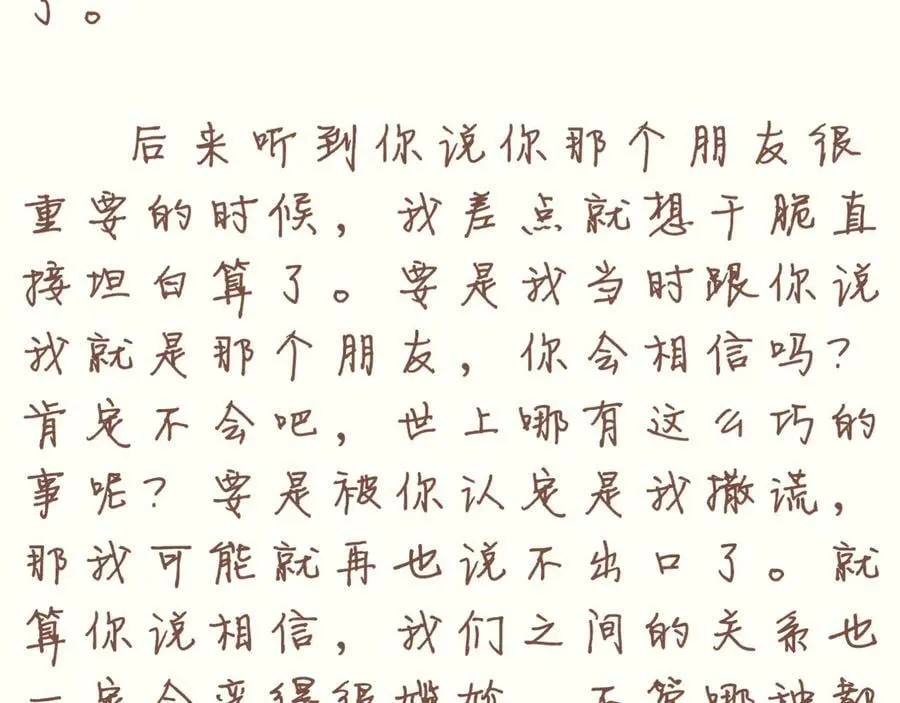 了。
后来听到你说你那个朋友很
重要的时候，我差点就想干脆直
接坦白算了。要是我当时跟你说
我就是那个朋友，你会相信吗？
肯定不会吧，世上哪有这么巧的
事呢？要是被你认定是我撒谎，
那我可能就再也说不出口了。就
算你说相信，我们之间的关系也
一定会变得很尴尬。不管哪种都